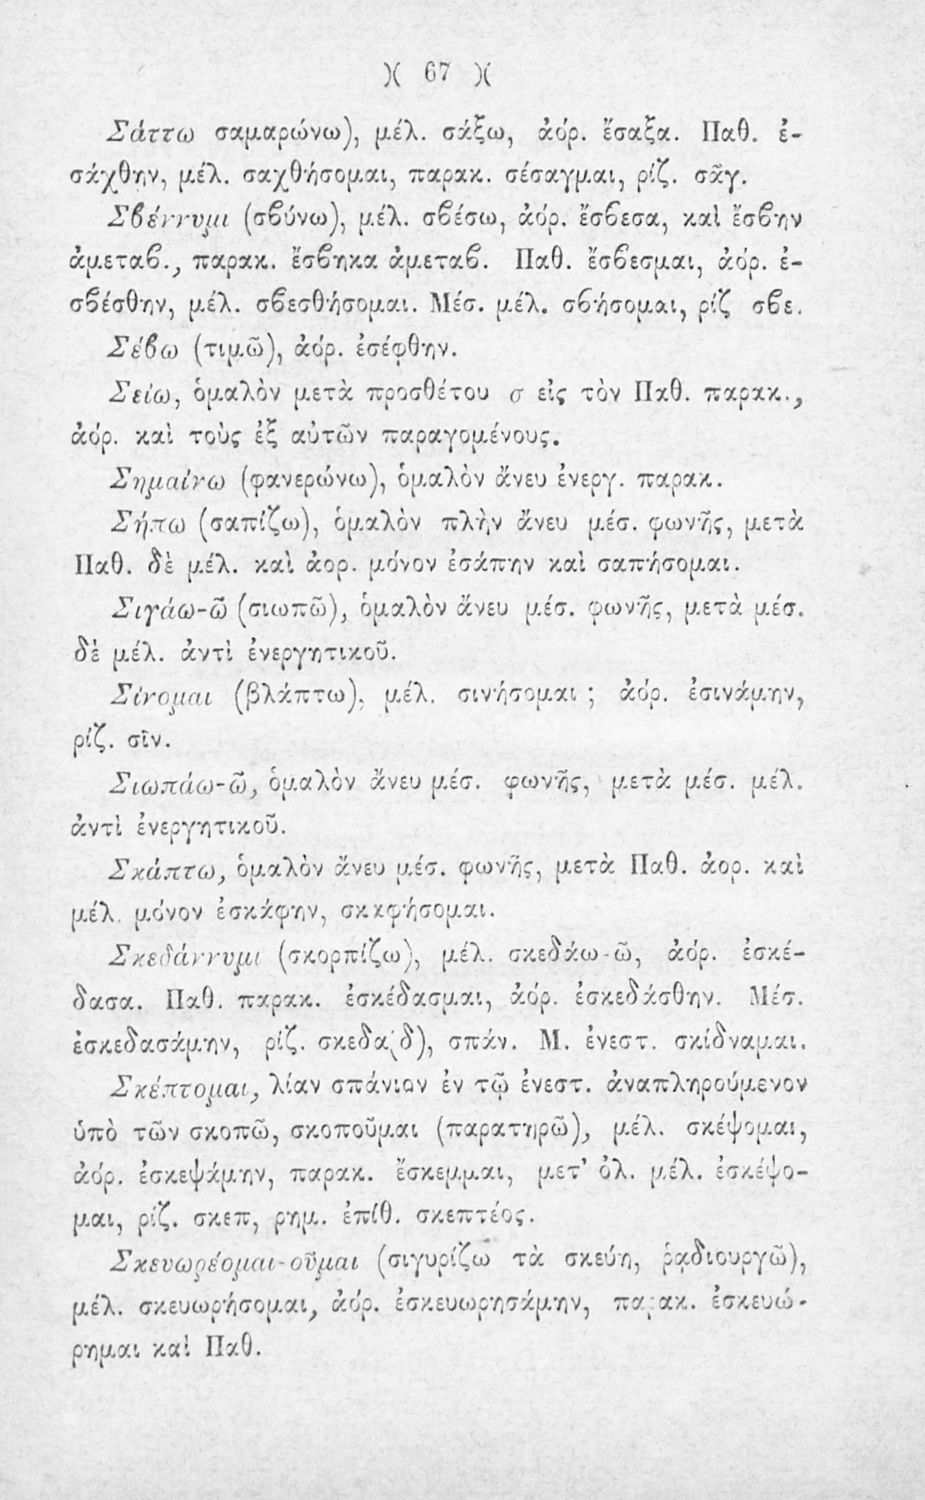 )( 67 )(
Σάττω σαμαρώνω), μέλ. σάξω, ἀόρ. ἔσαξα. Παθ. ἐ-
σάχθην, μέλ. σαχθήσομαι, παρακ. σέσαγμαι, ρίζ. σᾶγ.
Σβέννυμι (σβύνω), μέλ. σβέσω, ἀόρ. ἔσβεσα, καὶ ἔσβην
ἀμεταβ., παρακ. ἔσβηκα ἀμεταβ. Παθ. ἔσβεσμαι, ἀόρ. ἐ-
σβέσθην, μέλ. σβεσθήσομαι. Μέσ. μέλ. σβήσομαι, ρίζ σβε.
Σέβω (τιμῶ), ἀόρ. ἐσέφθην.
Σείω, ὁμαλὸν μετὰ προσθέτου σ εἰς τὸν Παθ. παρακ.,
ἀόρ. καὶ τοὺς ἐξ αὐτῶν παραγομένους.
Σημαίνω (φανερώνω), ὁμαλὸν ἄνευ ἐνεργ. παρακ.
Σήπω (σαπίζω), ὁμαλὸν πλὴν ἄνευ μέσ. φωνῆς, μετὰ
Παθ. δὲ μέλ. καὶ ἀορ. μόνον ἐσάπην καὶ σαπήσομαι.
Σιγάω-ῶ (σιωπῶ), ὁμαλὸν ἄνευ μέσ. φωνῆς, μετὰ μέσ.
δὲ μέλ. ἀντὶ ἐνεργητικοῦ.
Σίνομαι (βλάπτω), μέλ. σινήσομαι ; ἀόρ. ἐσινάμην,
ρίζ. σῖν.
Σιωπάω-ῶ, ὁμαλὸν ἄνευ μέσ. φωνῆς, μετὰ μέσ. μέλ.
ἀντὶ ἐνεργητικοῦ.
Σκάπτω, ὁμαλὸν ἄνευ μέσ. φωνῆς, μετὰ Παθ. ἀορ. καὶ
μέλ. μόνον ἐσκάφην, σκαφήσομαι.
Σκεδάννυμι (σκορπίζω), μέλ. σκεδάω-ῶ, ἀόρ. ἐσκέ-
δασα. Παθ. παρακ. ἐσκέδασμαι, ἀόρ. ἐσκεδάσθην. Μέσ.
ἐσκεδασάμην, ρίζ. σκεδα(δ), σπάν. Μ. ἐνεστ. σκίδναμαι.
Σκέπτομαι, λίαν σπάνιον ἐν τῷ ἐνεστ. ἀναπληρούμενον
ὑπὸ τῶν σκοπῶ, σκοποῦμαι (παρατηρῶ), μέλ. σκέψομαι,
ἀόρ. ἐσκεψάμην, παρακ. ἔσκεμμαι, μετ' ὀλ. μέλ. ἐσκέψο-
μαι, ρίζ. σκεπ, ρημ. ἐπίθ. σκεπτέος.
Σκευωρέομαι-οῦμαι (σιγυρίζω τὰ σκεύη, ῥᾳδιουργῶ),
μέλ. σκευωρήσομαι, ἀόρ. ἐσκευωρησάμην, παρακ. ἐσκευώ-
ρημαι καὶ Παθ.